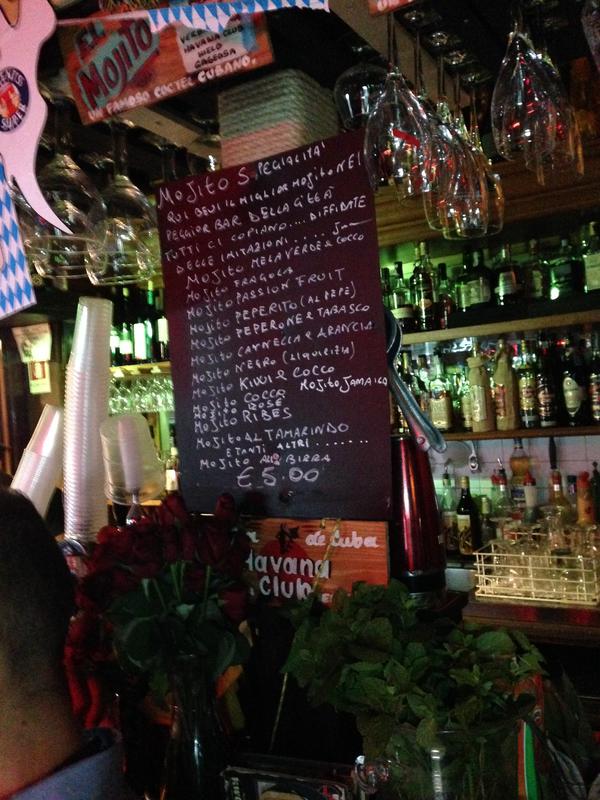 EL
MOJITO
HAVANA CLUB
HIELO
GASEOSA
UN FAMOSO COCTEL CUBANO.
MOJITO SPECIALITA'
QUI BEVI IL MIGLIOR MOJITO NEL
PEGGIOR BAR DELLA CITTÀ
TUTTI CI COPIANO.... DIFFIDATE
DELLE IMITAZIONI.....
MOJITO MELA VERDE & COCCO
MOJITO FRAGOLA
MOJITO PASSION FRUIT
MOJITO PEPERITO (AL PEPE)
MOJITO PEPERONE & TABASCO
MOJITO CANNELLA & ARANCIA
MOJITO NEGRO (LIQUIRIZIA)
MOJITO KIWI & COCCO
MOJITO JAMAICA
MOJITO COCCO
MOJITO ROSÉ
MOJITO RIBES
MOJITO AL TAMARINDO
E TANTI ALTRI.......
MOJITO ALLA BIRRA
€ 5.00
de Cuba
Havana
Club